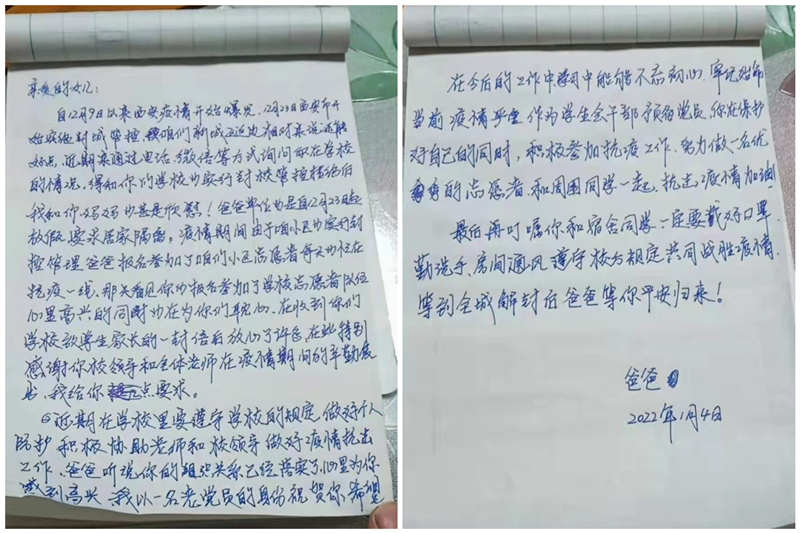 亲爱的女儿:
自12月9日以来西安疫情开始爆发,12月23日西安市开
始实施封城管控,咱们新城区这边相对来说还能
好点,近期来通过电话、微信等方式询问你在学校
的情况,得知你们学校也实行封校管控措施后
我和你妈妈也甚是欣慰!爸爸单位也是自12月23日起
放假,要求居家隔离,疫情期间由于咱小区也实行封
控管理爸爸报名参加了咱们小区志愿者每天也在
抗疫一线,那天看见你也报名参加了学校志愿者队伍
心里高兴的同时也在为你们担心。在收到你们
学校致学生家长的一封信后放心了许多,在此特别
感谢你校领导和全体老师在疫情期间的辛勤
我给你点要求。
近期在学校里要遵守学校的规定,做好个人
防护积极协助老师和校领导做好疫情抗击
工作,爸爸听说你的组织关系已经落实了,心里为你
感到高兴,我以一名老党员的身份祝贺你,希望
在今后的工作中学习中能够不忘初心、牢记使命
当前疫情严重作为学生会干部预备党员,你在保护
好自己的同时,积极参加抗疫工作,努力做一名优
秀的志愿者和周围同学一起,抗击疫情加油
最后再叮嘱你和宿舍同学一定要戴好口罩
勤洗手,房间通风遵守校方规定共同战胜疫情,
等到全城解封后爸爸等你平安归来!
爸爸
2022年1月4日